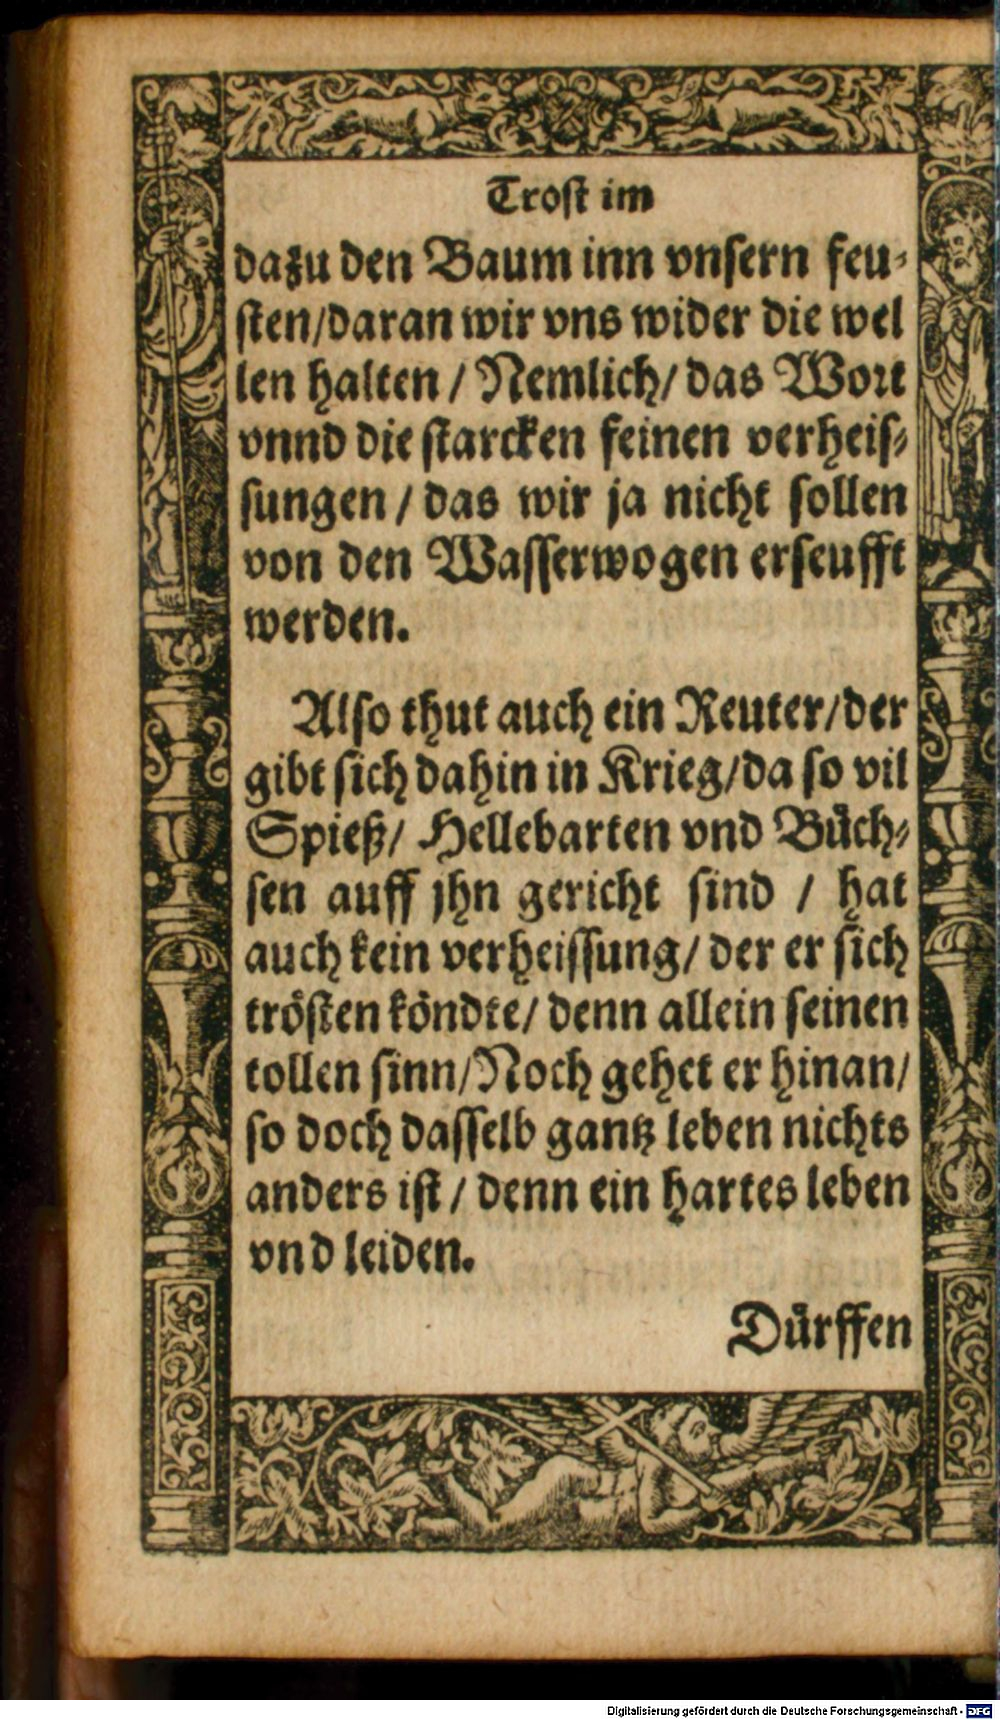 Trost im
dazu den Baum inn vnsern feu-
sten/daran wir vns wider die wel
len halten / Nemlich/ das Wort
vnnd die starcken feinen verheis-
sungen / das wir ja nicht sollen
von den Wasserwogen erseufft
werden.
Also thut auch ein Reuter/der
gibt sich dahin in Krieg/da so vil
Spieß/ Hellebarten vnd Bůch-
sen auff jhn gericht sind / hat
auch kein verheissung/ der er sich
trösten köndte/ denn allein seinen
tollen sinn/Noch gehet er hinan/
so doch dasselb gantz leben nichts
anders ist / denn ein hartes leben
vnd leiden.
Důrffen
Digitalisierung gefördert durch die Deutsche Forschungsgemeinschaft - DFG